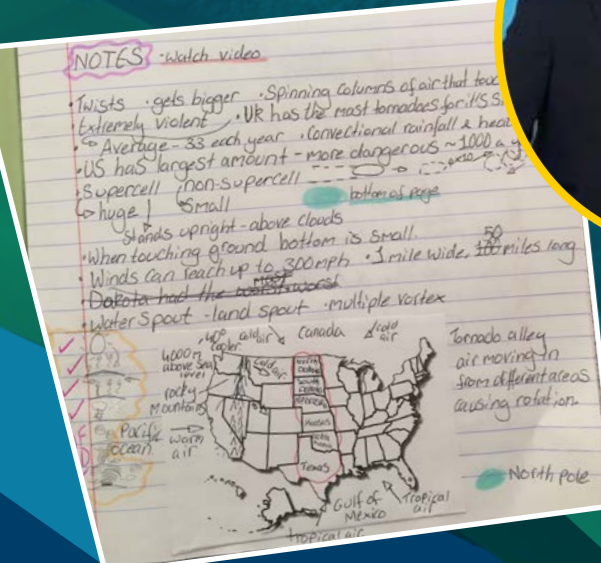 NOTES · Watch video
· Twists · gets bigger · Spinning columns of air that
Extremely violent · UK has the most tornadoes for it's
↳ Average - 33 each year · Convectional rainfall &
· US has largest amount - more dangerous ~ 1000 a
· Supercell non-supercell
↳ huge small
bottom of page
Stands upright - above clouds
· When touching ground bottom is small.
· Winds can reach up to 300mph · 1 mile wide, 50 miles long
· Dakota had the
· Water Spout - land spout · multiple vortex
40° cooler
cold air
Canada
cold air
4000m above Sea level
cold air
North Dakota
South Dakota
rocky Mountains
Kansas
Texas
Pacific ocean
warm air
Gulf of Mexico
Tropical air
tropical air
Tornado alley
air moving in
from different areas
causing rotation.
North pole